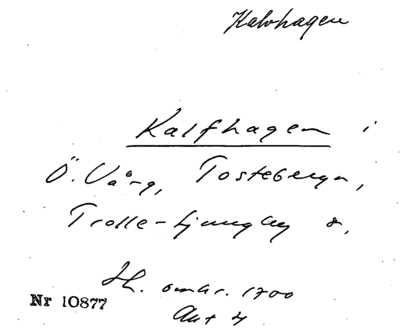 Kalvhagen
Kalfhagen i
Ö. Vång, Tosteberga,
Trolle-Ljungby s,
Sk. omkr. 1700
Akt 4
Nr 10877